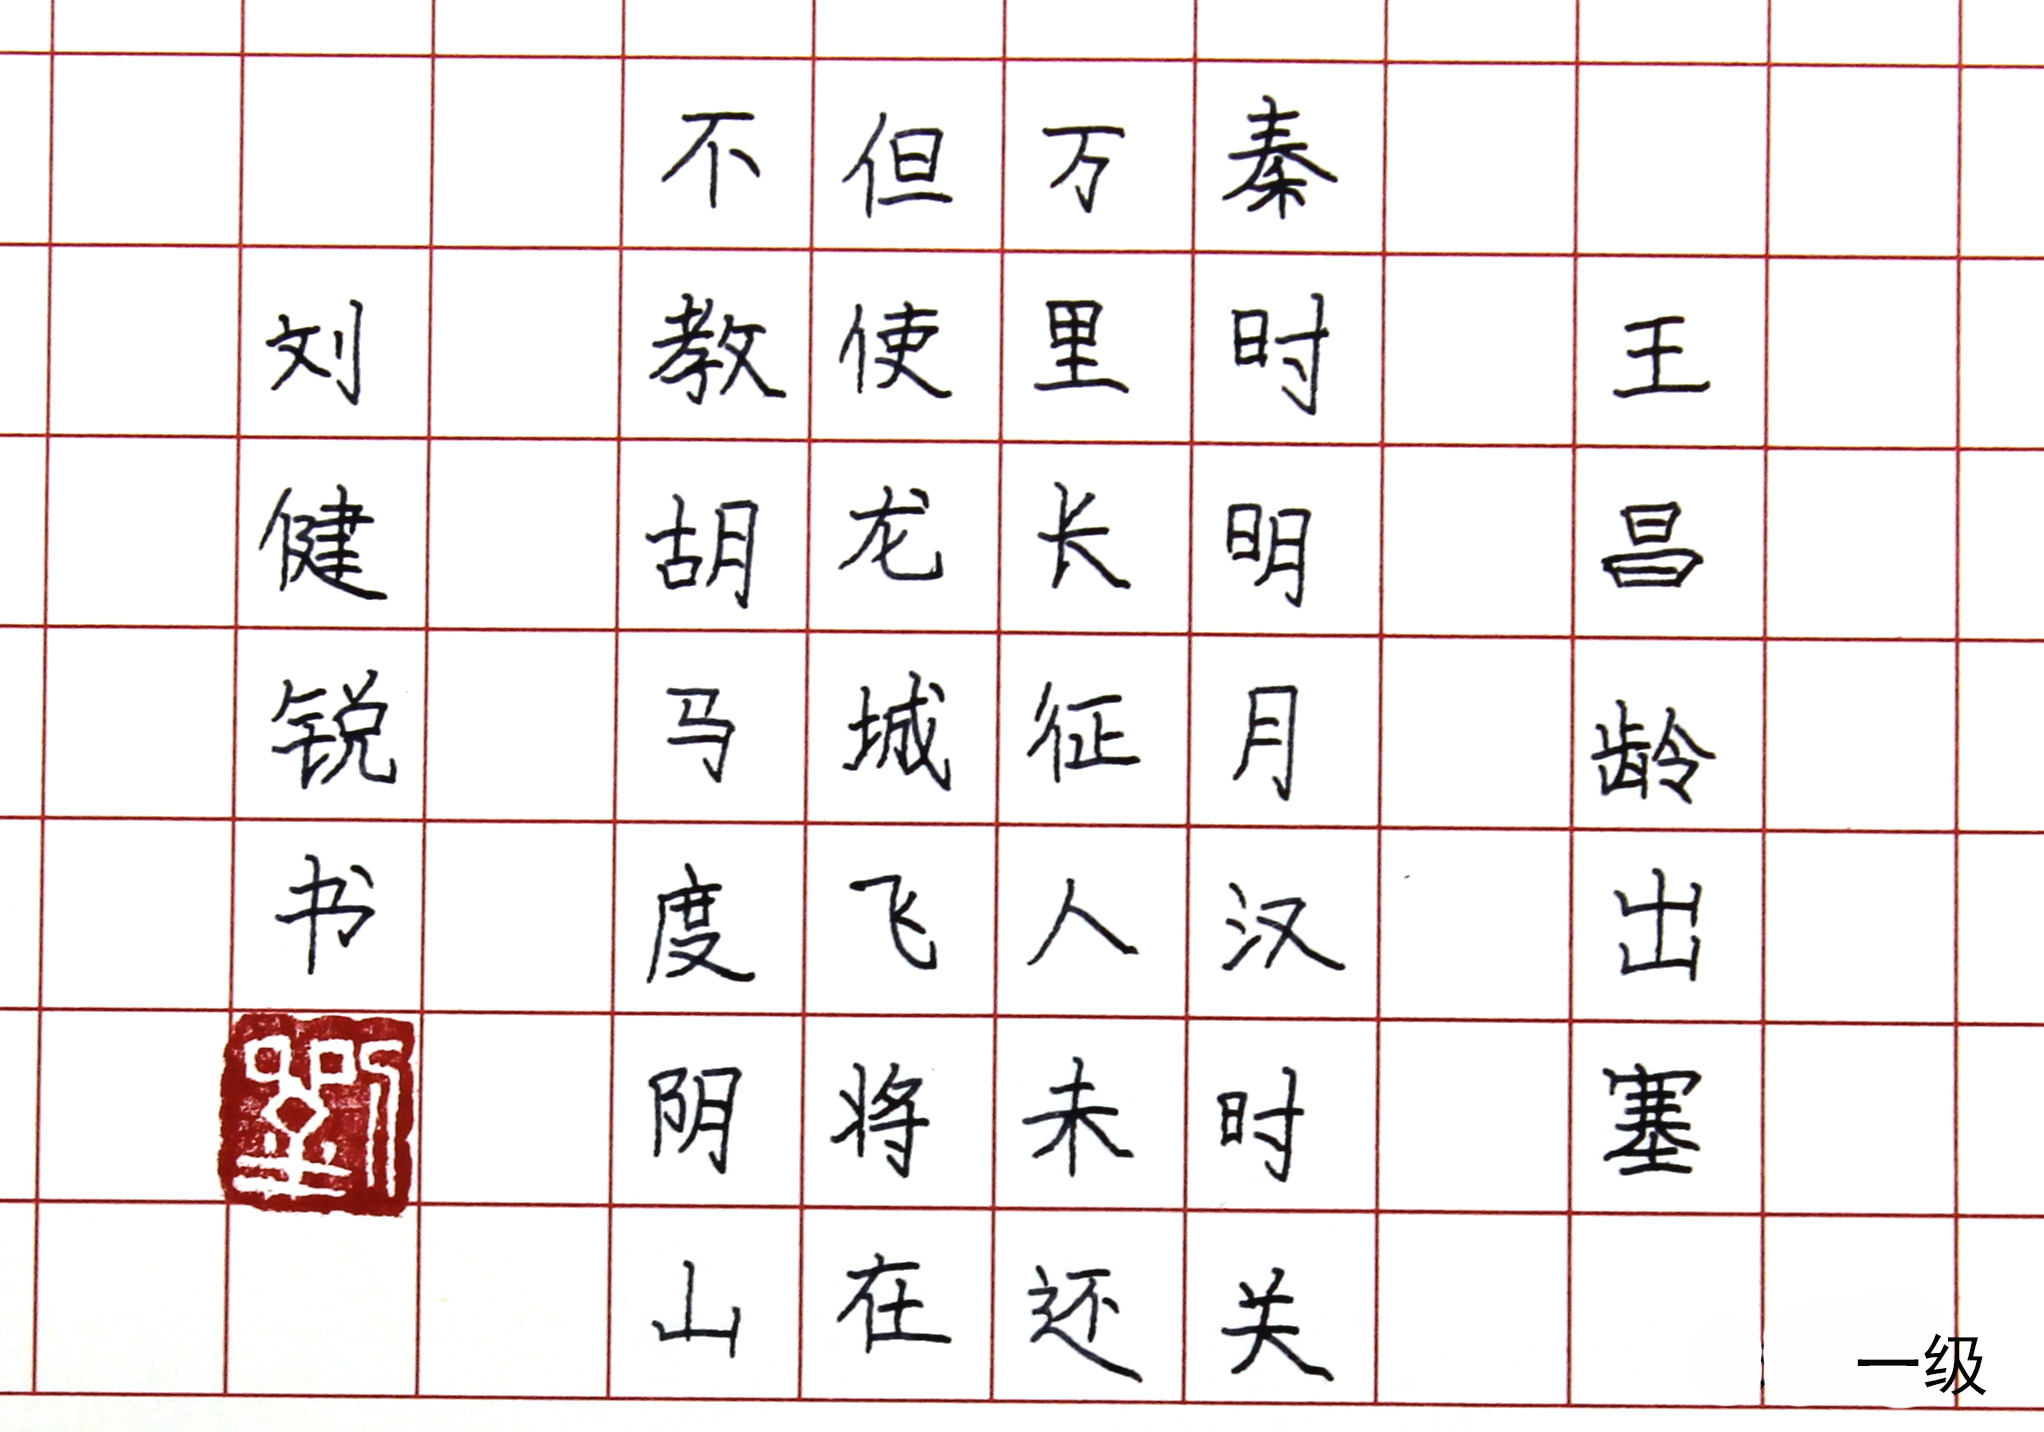 王昌龄出塞
秦时明月汉时关
万里长征人未还
但使龙城飞将在
不教胡马度阴山
刘健锐书
一级